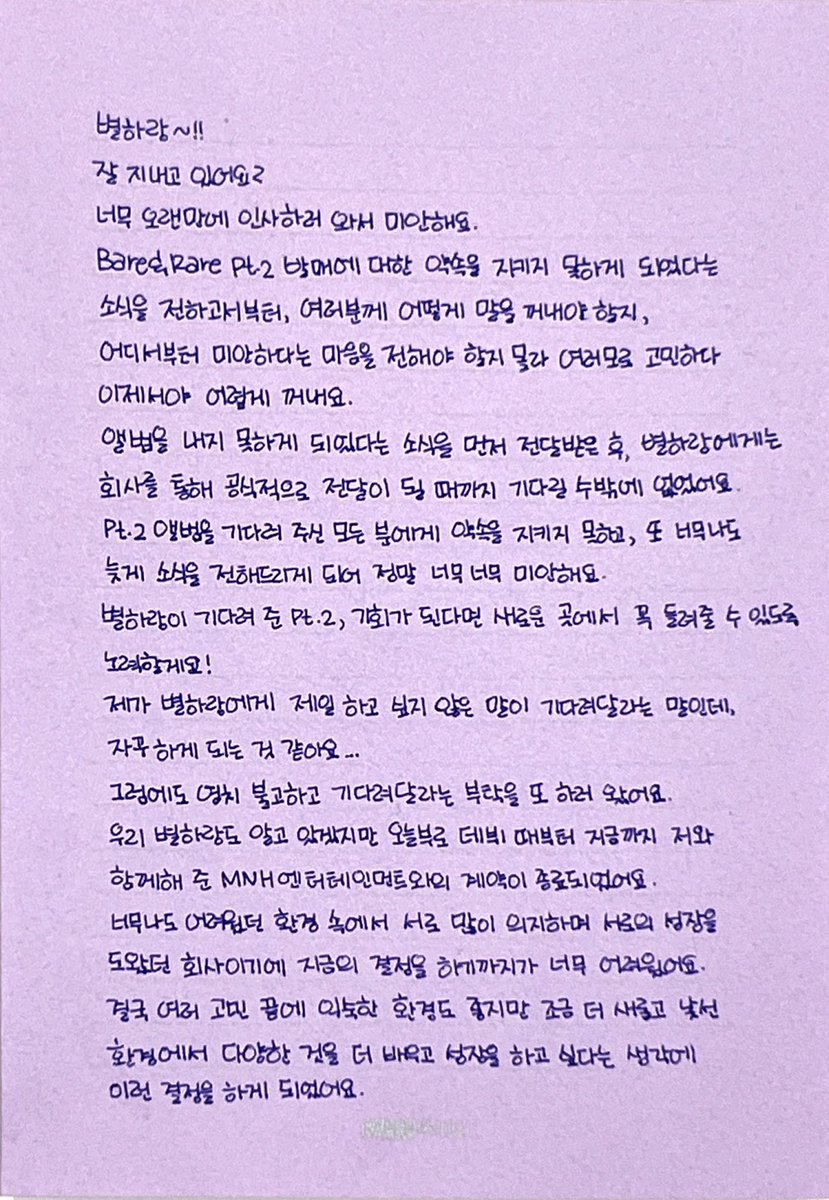 별하랑~!!
잘 지내고 있어요?
너무 오랜만에 인사하러 와서 미안해요.
Bare&Rare Pt.2 발매에 대한 약속을 지키지 못하게 되었다는
소식을 전하고서부터, 여러분께 어떻게 말을 꺼내야 할지,
어디서부터 미안하다는 마음을 전해야 할지 몰라 여러모로 고민하다
이제서야 어렵게 꺼내요.
앨범을 내지 못하게 되었다는 소식을 먼저 전달받은 후, 별하랑에게는
회사를 통해 공식적으로 전달이 될 때까지 기다릴 수밖에 없었어요.
Pt.2 앨범을 기다려 주신 모든 분에게 약속을 지키지 못하고, 또 너무나도
늦게 소식을 전해드리게 되어 정말 너무너무 미안해요.
별하랑이 기다려 준 Pt.2, 기회가 된다면 새로운 곳에서 꼭 들려줄 수 있도록
노력할게요!
제가 별하랑에게 제일 하고 싶지 않은 말이 기다려달라는 말인데,
자꾸 하게 되는 것 같아요...
그럼에도 염치 불고하고 기다려달라는 부탁을 또 하러 왔어요.
우리 별하랑도 알고 있겠지만 오늘부로 데뷔 때부터 지금까지 저와
함께해 준 MNH엔터테인먼트와의 계약이 종료되었어요.
너무나도 어려웠던 환경 속에서 서로 많이 의지하며 서로의 성장을
도왔던 회사이기에 지금의 결정을 하기까지가 너무 어려웠어요.
결국 여러 고민 끝에 익숙한 환경도 좋지만 조금 더 새롭고 낯선
환경에서 다양한 것을 더 배우고 성장을 하고 싶다는 생각에
이런 결정을 하게 되었어요.